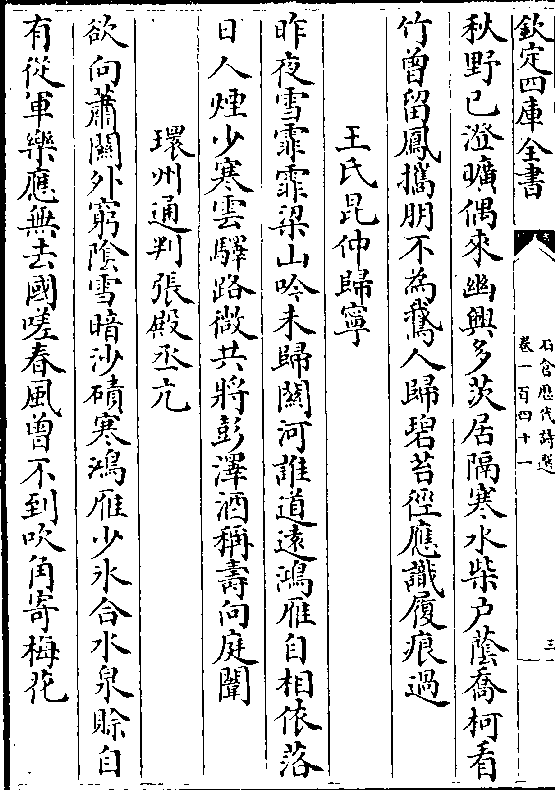 欽定四庫全書
石倉歷代詩選
卷一百四十一
三
秋野已澄曠偶來幽興多茨居隔寒水柴戶蔭喬柯看
竹曾留鳳攜朋不為鵞人歸碧苔徑應識履痕過
王氏昆仲歸寧
昨夜雪霏霏梁山吟未歸關河誰道遠鴻雁自相依落
日人煙少寒雲驛路微共將彭澤酒稱壽向庭闈
環州通判張殿丞亢
欲向蕭關外窮陰雪暗沙磧寒鴻雁少氷合水泉賖自
有從軍樂應無去國嗟春風曾不到吹角寄梅花